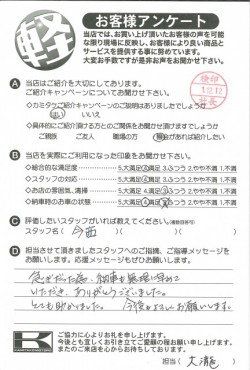 軽
お客様アンケート
当店では、お買い上げ頂いたお客様の声を可能
な限り現場に反映し、お客様により良い商品と
サービスを提供する事に努めています。
大変お手数ですが是非お声をお聞かせ下さい。
検印
1.12.12
社長
A 当店はご紹介を大切にしております。
ご紹介キャンペーンについてお聞かせ下さい。
◇カミタケご紹介キャンペーンのご説明はありましたでしょうか
はい いいえ
◇具体的にご紹介頂ける方とのご関係をお聞かせ頂けますでしょうか
ご親族 ご友人 職場の方
B 当店を実際にご利用になった印象をお聞かせ下さい。
◇総合的な満足度 5.大満足 4.満足 3.ふつう 2.やや不満 1.不満
◇スタッフの対応 5.大満足 4.満足 3.ふつう 2.やや不満 1.不満
◇お店の雰囲気、清掃 5.大満足 4.満足 3.ふつう 2.やや不満 1.不満
◇納車時のお車の状態 5.大満足 4.満足 3.ふつう 2.やや不満 1.不満
C 評価したいスタッフがいれば教えてください。(複数回答可)
スタッフ名( 今西 )
D 担当させて頂きましたスタッフへのご指摘、ご指導メッセージをお
願いします。応援メッセージもぜひお願いします。
急ぎだった為、納車も無理に早めて
いただき、ありがとうございました。
とても助かりました。今後ともよろしくお願いします。
K
ご協力に心よりお礼を申し上げます。
今後とも宜しくお引き立てご愛顧の程お願い申し上げます。
またのご来店を心からお待ちしております。
担当( 大瀧 )